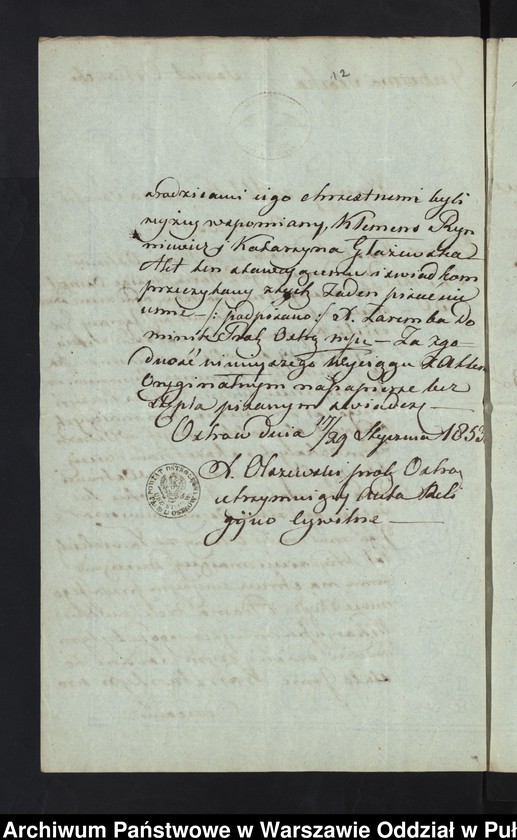 12
rodzicami iego chrzestnemi byli
wyżey wspomiany, Klemens Ryn
niewicz j Katarzyna Głażewska
Akt ten stawaiącemu i swiadkom
przeczytany z tych żaden pisać nie
umie — /: podpisano :/ X. Zaremba Do
minik Prob. Ostro. mpr — Za zgo
dność ninieyszego Wyciągu z Aktem
Oryginalnym na papierze bez
stępla pisanym swiadczę —
Ostrow dnia 17/29 Stycznia 1853
X. Olszewski prob. Ostro.
utrzymuiący Akta Reli
giino Cywilne —
Archiwum Państwowe w Warszawie Oddział w Puł